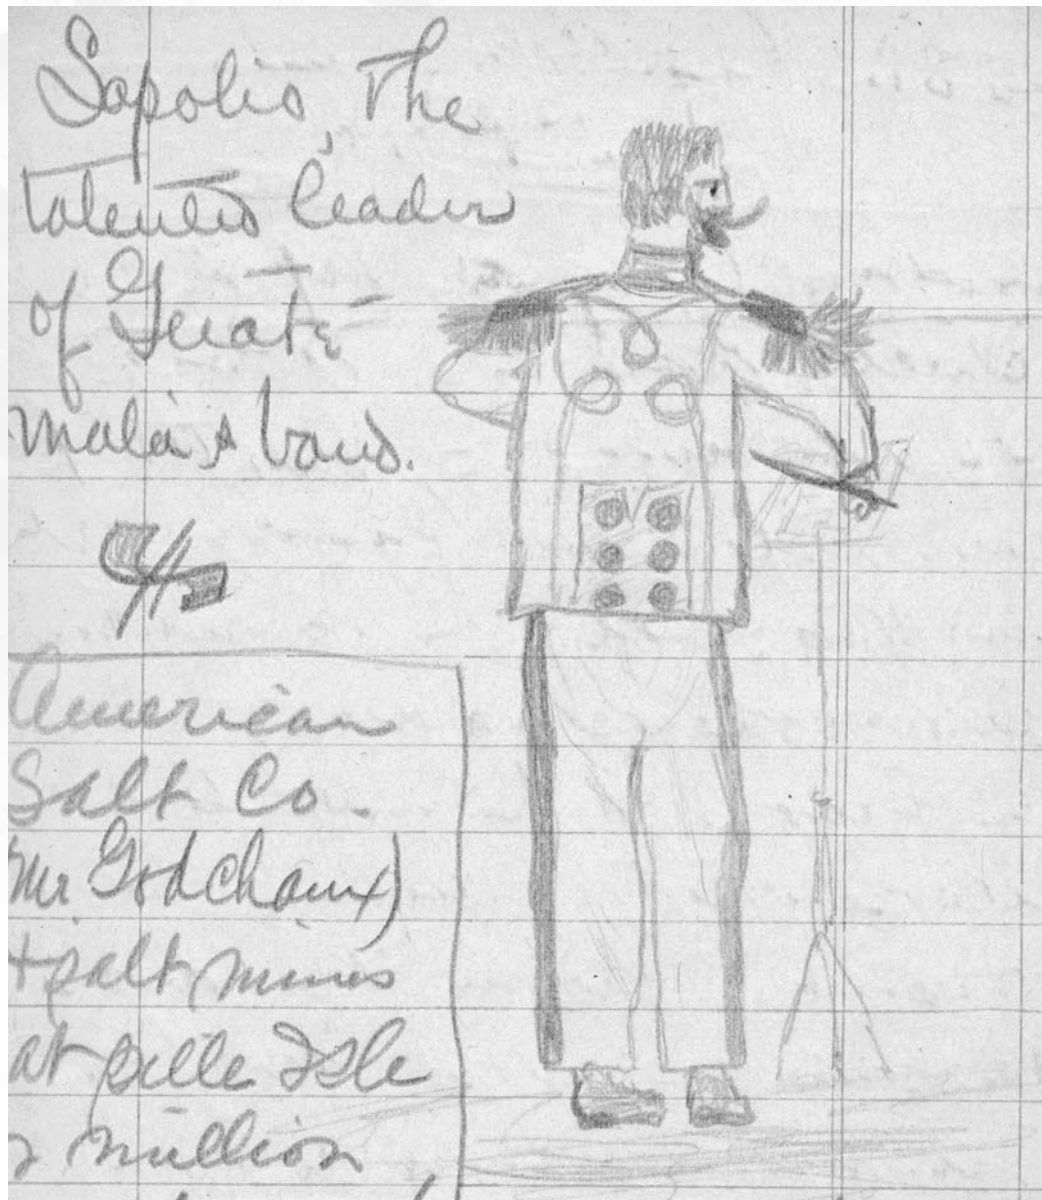 Sapolio, The
talented leader
of Guate-
mala's band.
American
Salt Co
Mr Godchaux)
+ salt mines
at Isle
million